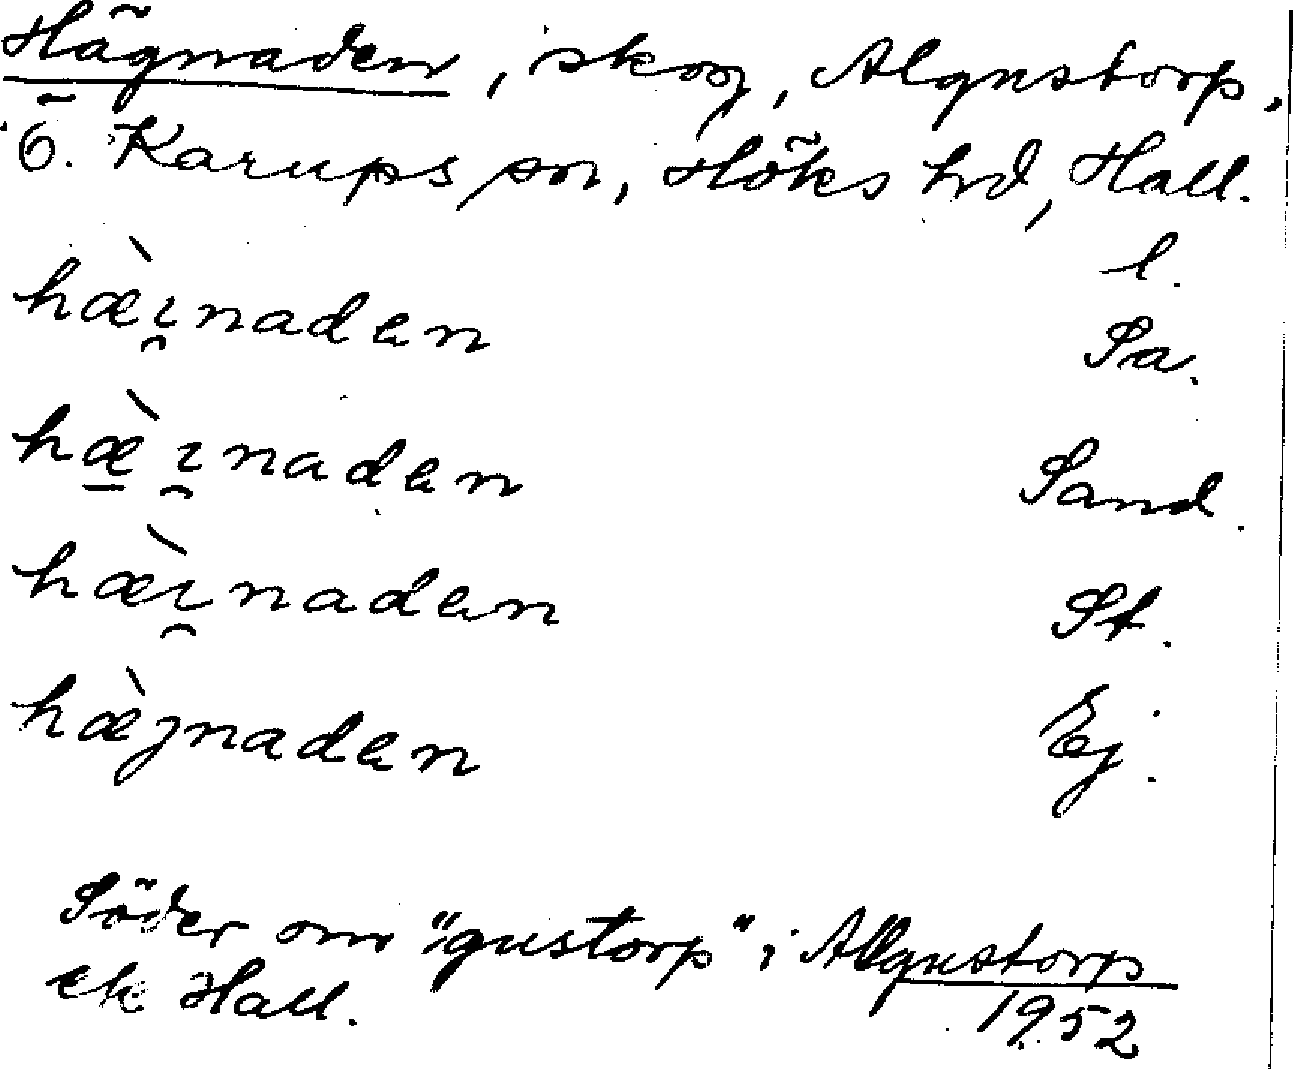 Hägnaden, skog, Algustorp,
Ö. Karups sn, Höks hd, Hall.
l.
hæ̀ɪ̯naden Sa.
hæ̱̀ɪ̯naden Sand.
hæ̀ɪ̯naden St.
hæ̀jnaden Ej.
Söder om "gustorp" i Allgustorp
ek Hall. 1952